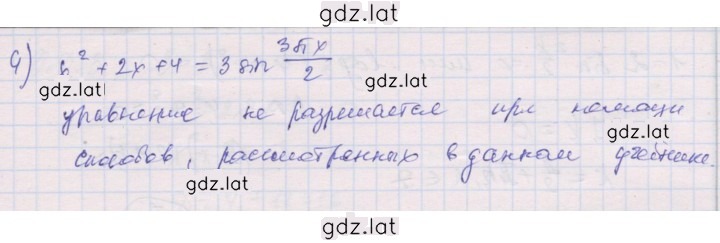 gdz.lat
4) x² + 2x + 4 = 3 sin 3πx/2
gdz.lat
gdz.lat
уравнение не разрешается при помощи
gdz.lat
способов, рассмотренных в данном учебнике.
gdz.lat
gdz.lat